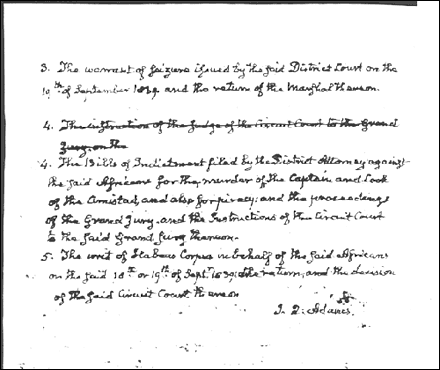 3. The warrant of Seizure issued by the said District Court on the
19th of September 1839 and the return of the Marshal thereon.
4. The instruction of the Judge of the Circuit Court to the Grand
Jury, on the
4. The Bills of Indictment filed by the District Attorney against
the said Africans for the murder of the Captain and Cook
of the Amistad, and also for piracy; and the proceedings
of the Grand Jury, and the Instructions of the Circuit Court
to the said Grand Jury thereon.
5. The writ of Habeas Corpus in behalf of the said Africans
on the said 18th or 19th of Sept. 1839; the return, and the decision
of the said Circuit Court thereon
J. Q. Adams